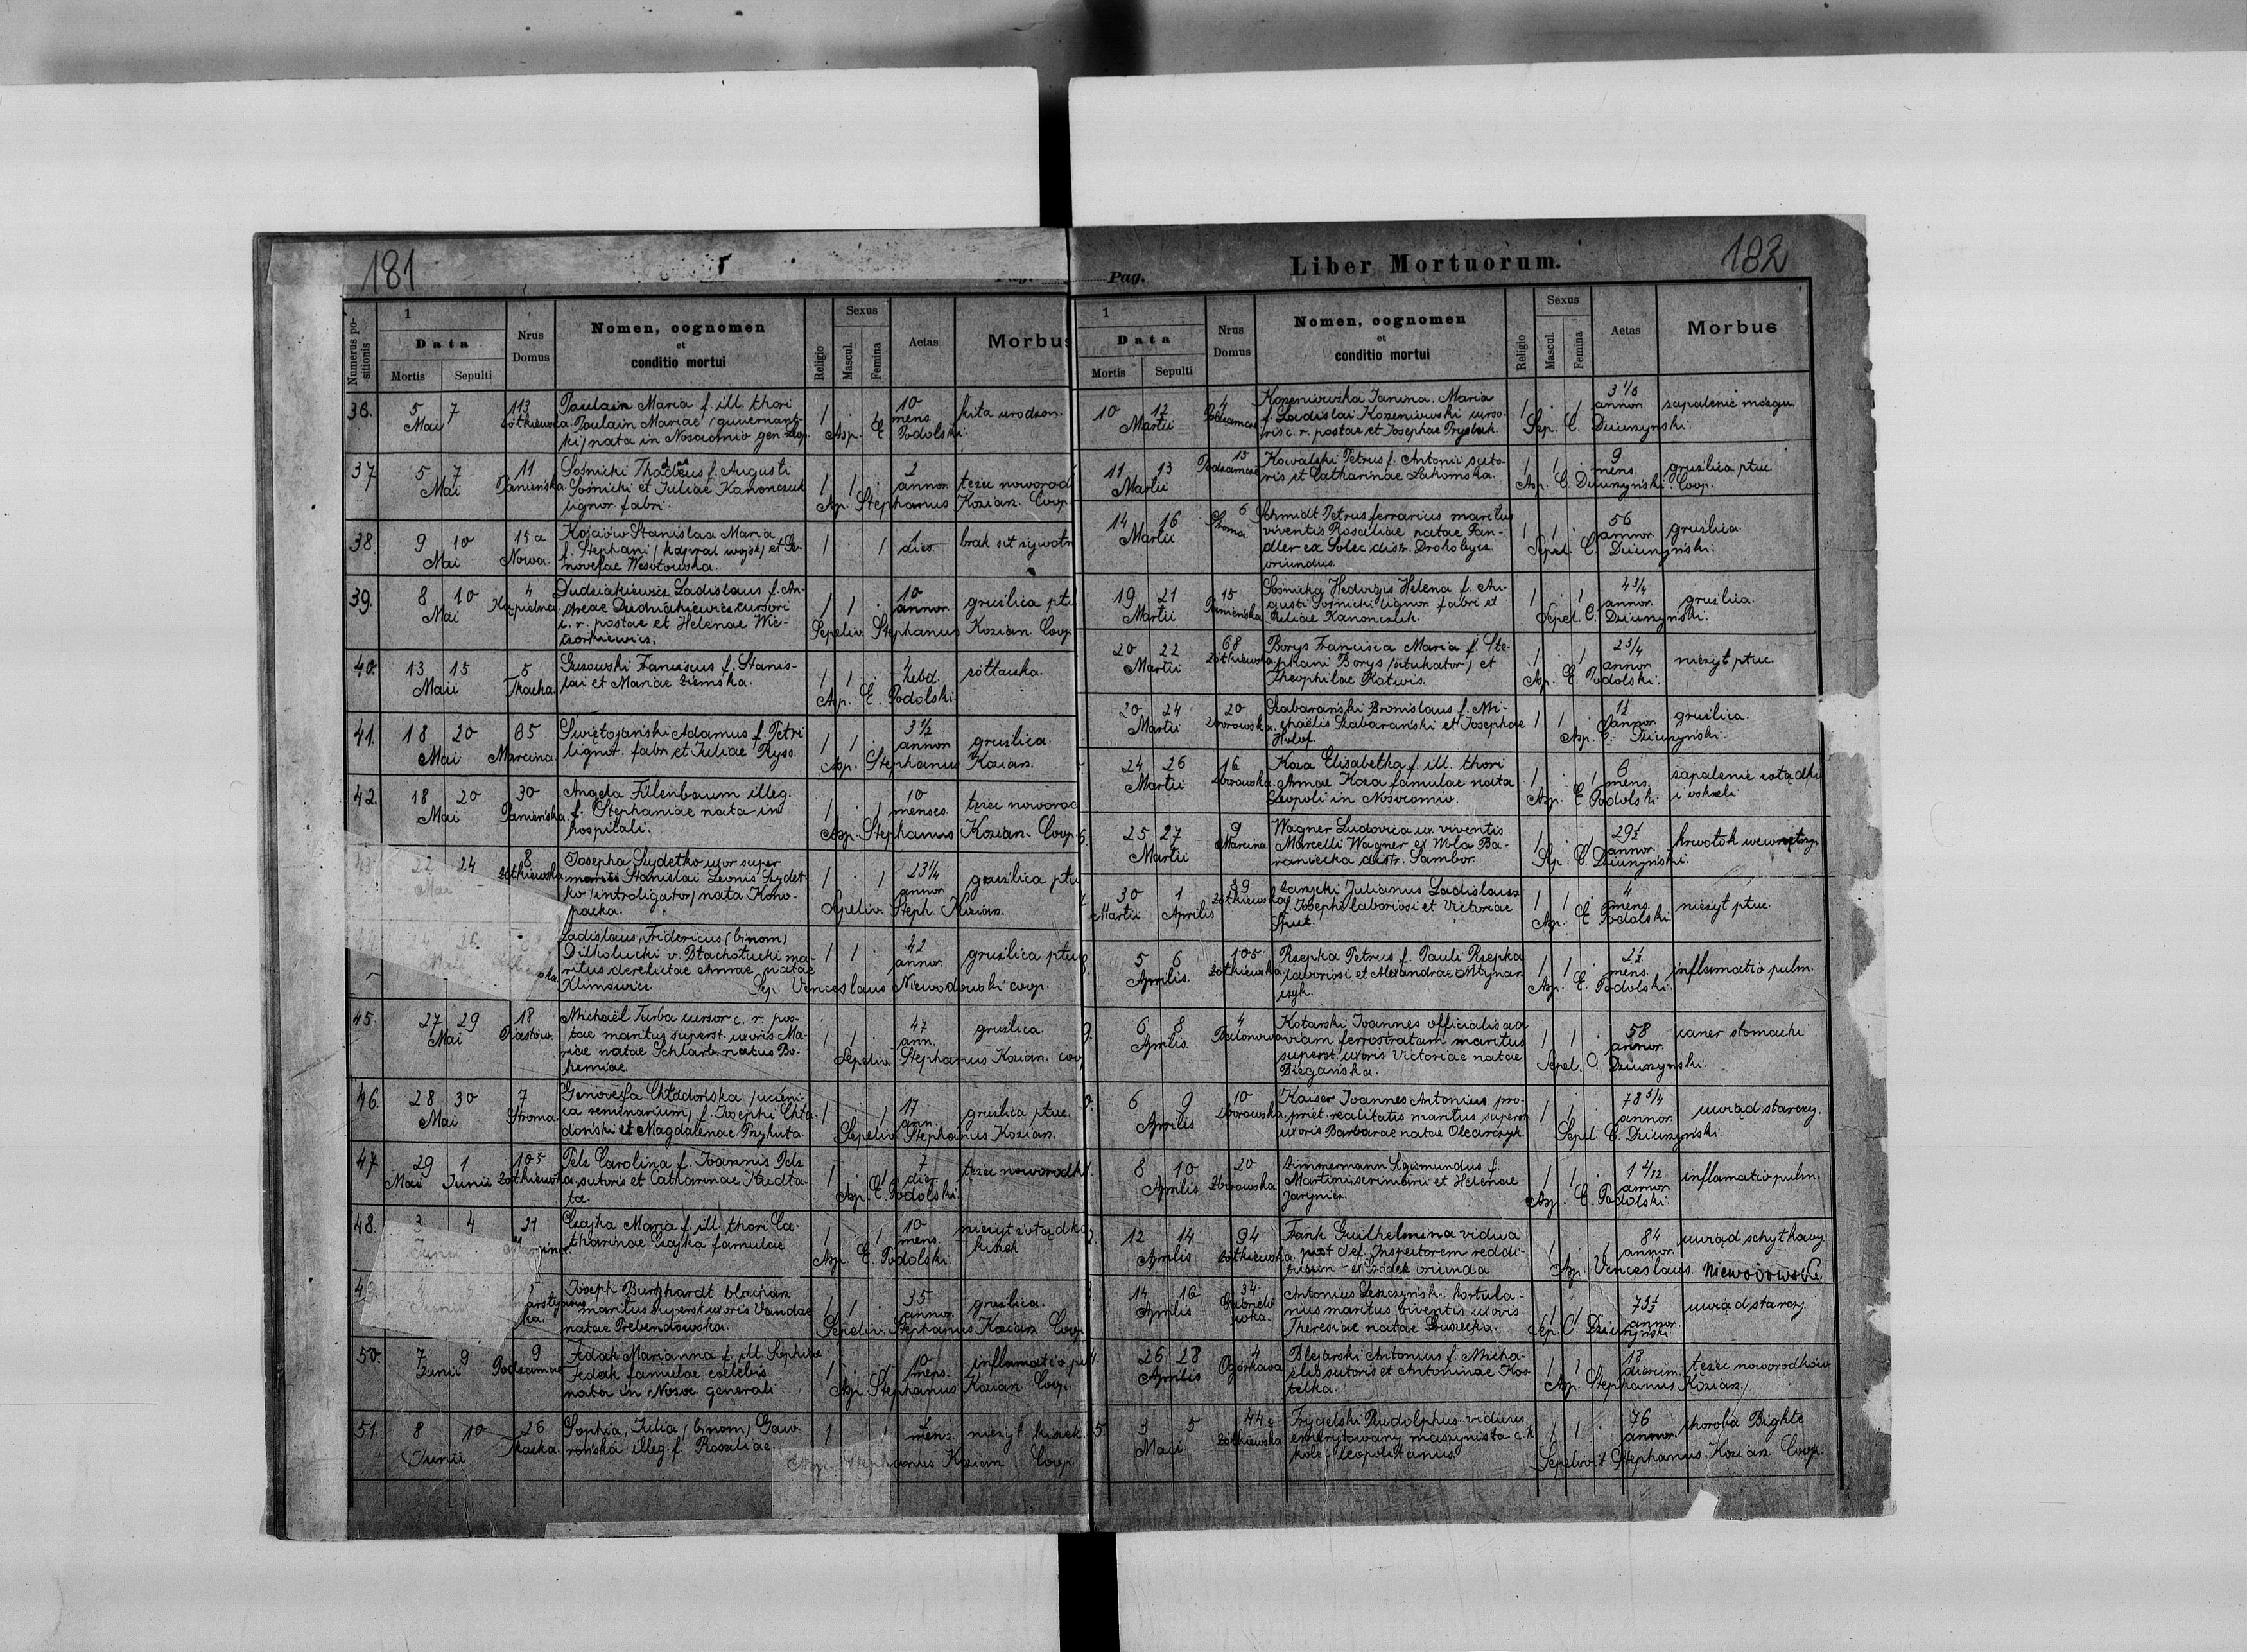 181
Numerus positionis
1
Data
Mortis
Sepulti
Nrus Domus
Nomen, cognomen
et
conditio mortui
Religio
Sexus
Mascul.
Femina
Aetas
Morbus
36. 5 7 Mai 113 Paulain Maria f. ill. thori 1 · 1 10 mens.
Paulain Mariae / guvernant-
ki / nata in Nosocomio gen.
Asp. E Podolski.
37 5 7 Mai 11 Panieńska Sośnicki Thadeus f. Augusti 1 1 · 2 annor.
Sośnicki et Juliae Kanonczuk
lignor. fabri.
Ap. Stephanus Kozian. Coop.
38. 9 10 Mai 15 a Nowa. Kościów Stanislaa Maria 1 · 1 1 dies
f. Stephani / kapral wojsk / et Ge-
novefae Wesołowska.
39. 8 10 Mai 4 Kąpielna Dudziakiewicz Ladislaus f. An- 1 1 · 10 annor. gruźlica płu
dreae Dudziakiewicz cursori
c. r. postae et Helenae
Sepeliv. Stephanus Kozian Coop.
40. 13 15 Maii 5 Tkacka. Guzowski Franciscus f. Stanis- 1 1 · hebd. żółtaczka.
lai et Mariae Ziemska.
Asp. E. Podolski.
41. 18 20 Mai 65 Marcina Świętojański Adamus f. Petri 1 1 · 3 1/2 annor gruźlica.
lignor. fabri et Juliae Ryss.
Asp. Stephanus Kozian.
42. 18 20 Mai 30 Panieńska Angela Fülenbaum illeg. 1 · 1 10 menses.
f. Stephaniae nata in
hospitali.
Asp. Stephanus Kozian. Coop.
43 22 24 Mai 8 Żółkiewska Josepha Szydełko uxor super. 1 · 1 23 1/4 annor gruźlica płu
mariti Stanislai Leonis Szydeł-
ko / introligator / nata Kono-
packa.
Sepeliv. Steph. Kozian.
Ladislaus, Fridericus (binom) 1 1 · 42 annor. gruźlica płuc
ritus derelictae Annae natae
Klimowicz.
Sep. Venceslaus Niewodowski coop.
45. 27 29 Mai 18 Piastów. Michaël Turba cursor c. r. pos- 1 1 · 47 ann. gruźlica.
tae maritus superst. uxoris Ma-
riae natae Schlarb natus Bo-
hemiae.
Sepeliv. Stephanus Kozian. coop
46. 28 30 Mai 7 Stroma. Genovefa Chładońska / uczen- 1 · 1 17 ann. gruźlica płuc.
ica seminarium / f. Josephi Chła-
doński et Magdalenae Przykuta
Sepeliv. Stephanus Kozian.
47. 29 1 Mai Junii 105 Żółkiewska Pelz Carolina f. Joannis Pelz 1 · 1 7 dier.
sutoris et Catharinae
Asp. E. Podolski.
48. 3 4 Junii 21 Marcina Czajka Maria f. ill. thori Ca- 1 · 1 10 mens. nieżyt żołądka
tharinae Czajka famulae kiszek
Asp. E. Podolski.
49. 5 Joseph Burghardt blacharz 1 1 · 35 annor gruźlica.
maritus superst. uxoris Vandae
natae Prebendowska.
Sepeliv. Stephanus Kozian Coop
50. 7 9 Junii 9 Podzamcze Fedak Marianna f. ill. Sophiae 1 · 1 10 mens. inflamatio pu
Fedak famulae coelebis
nata in Nosoc generali
Asp. Stephanus Kozian. Coop.
51. 8 10 Junii 26 Tkacka. Sophia, Julia (binom) Gaw- 1 · 1 mens. nieżyt kiszek
rońska illeg. f. Rosaliae.
Asp. Stephanus Kozian Coop
Pag.
Liber Mortuorum.
182
1
Data
Mortis
Sepulti
Nrus Domus
Nomen, cognomen
et
conditio mortui
Religio
Sexus
Mascul.
Femina
Aetas
Morbus
10 12 Martii 4 Podzamcze Korzeniowska Janina Maria 1 · 1 3 1/8 annor zapalenie mózgu
f. Ladislai Korzeniowski curso-
ris c. r. postae et Josephae
Sep. C. Dziurzyński.
11 13 Martii 13 Podzamcze Kowalski Petrus f. Antonii suto- 1 1 · 9 mens. gruźlica płuc
ris et Catharinae Łakomska.
Asp. C. Dziurzyński. Coop.
14 16 Martii 6 Stroma Schmidt Petrus ferrarius maritus 1 1 · 56 annor gruźlica.
viventis Rosaliae natae Fan-
dler ex Solec distr. Drohobycz
oriundus.
Sepel. C. Dziurzyński.
19 21 Martii 15 Panieńska Sośnicka Hedvigis Helena f. Au- 1 · 1 4 3/4 annor. gruźlica.
gusti Sośnicki lignor fabri et
Juliae Kanonczuk.
Sepel. C. Dziurzyński.
20 22 Martii 68 Żółkiewska Borys Francisca Maria f. Ste- 1 · 1 2 3/4 annor nieżyt płuc.
phani Borys / sztukator / et
Theophilae
Asp. E. Podolski.
20 24 Martii 20 Zborowska Szabarański Bronislaus f. Mi- 1 1 · annor. gruźlica.
chaëlis Szabarański et Josephae
Holof.
Asp. C. Dziurzyński.
24 26 Martii 16 Zborowska. Koza Elisabetha f. ill. thori 1 · 1 6 mens. zapalenie żołądka
Annae Koza famulae nata i oskrzeli
Leopoli in Nosocomio.
Asp. E Podolski.
25 27 Martii 9 Marcina Wagner Ludovica ux. viventis 1 · 1 29 1/2 annor. krwotok wewnętrzn.
Marcelli Wagner ex Wola Ba-
raniecka distr. Sambor.
Sep. C. Dziurzyński.
30 1 Martii Aprilis 89 Żółkiewska Zarzycki Julianus Ladislaus 1 1 · 4 mens. nieżyt płuc.
f. Josephi laboriosi et Victoriae
Asp. E Podolski.
5 6 Aprilis. 105 Żółkiewska Rzepka Petrus f. Pauli Rzepka 1 1 · 2 1/2 mens. inflamatio pulm.
laboriosi et Alexandrae Młynar-
czyk.
Asp. E. Podolski.
6 8 Aprilis. 4 Balonowa Kotarski Joannes officialis ad 1 1 · 58 annor. cancer stomachi
viam ferrostratam maritus
superst. uxoris Victoriae natae
Biegańska.
Sepel. C. Dziurzyński.
6 9 Aprilis 10 Zborowska Kaiser Joannes Antonius pro- 1 1 · 78 3/4 annor. uwiąd starczy.
priet. realitatis maritus superst
uxoris Barbarae natae Olearczyk.
Sepel C. Dziurzyński.
8 10 Aprilis 20 Zborowska Zimmermann Sigismundus f. 1 1 · 1 2/12 annor inflamatio pulm.
Martini scriniarii et Helenae
Asp. E. Podolski.
12 14 Aprilis 94 Żółkiewska Fank Guilhelmina vidua 1 · 1 84 annor. uwiąd schyłkowy
post def. Inspectorem reddi-
tuum - ex Gródek oriunda
Asp. Venceslaus. Niewodowski
14 16 Aprilis 34 Gabrielówka. Antonius Leszczyński hortula- 1 1 · 73 1/2 annor. uwiąd starczy.
nus maritus viventis uxoris
Theresiae natae
Sep. C. Dziurzyński.
26 28 Aprilis 4 Ogórkowa Blejarski Antonius f. Micha- 1 1 · 18 dierum. tężec noworodków
elis sutoris et Antoninae Kos-
telka.
Asp. Stephanus Kozian.
5. 3 5 Maii 44 c Żółkiewska Frygelski Rudolphus viduus 1 1 · 76 annor. choroba Bighte
emerytowany maszynista c. k.
kolei leopolitanus.
Sepelivit Stephanus Kozian Coop.